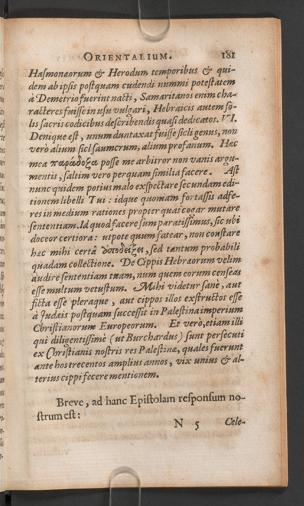 ORIENTALIUM. 181
Hasmonæorum & Herodum temporibus & qui-
dem ab ipsis postquam cudendi nummi potestatem
à Demetrio fuerint nacti, Samaritanos enim cha-
racteres fuisse in usu vulgari, Hebraicis autem so-
lis sacris codicibus describendis quasi dedicatos. VI.
Denique est, unum duntaxat fuisse sicli genus, non
verò alium sicl. sacrum, alium profanum. Hæc
mea παράδοξα posse me arbitror non vanis argu-
mentis, saltim vero perquam simili a facere. Ast
nunc quidem potius malo exspectare secundam edi-
tionem libelli Tui: idque quoniam fortassis adfe-
res in medium rationes propter quas cogar mutare
sententiam. Id quod facere sum paratissimus, sic ubi
doceor certiora: utpote quum fatear, non constare
hæc mihi certâ ἀποδείξει, sed tantum probabili
quadam collectione. De Cippis Hebræorum velim
audire sententiam tuam, num quem eorum censeas
esse multum vetustum. Mihi videtur sanè, aut
ficta esse pleraque, aut cippos illos exstructos esse
à Judæis postquam successit in Palestina imperium
Christianorum Europeorum. Et verò, etiam illi
qui diligentissimè (ut Burchardus) sunt persecuti
ex Christianis nostris res Palestinæ, quales fuerunt
ante hos trecentos amplius annos, vix unius & al-
terius cippi fecere mentionem.
Breve, ad hanc Epistolam responsum no-
strum est:
N 5 Cele-